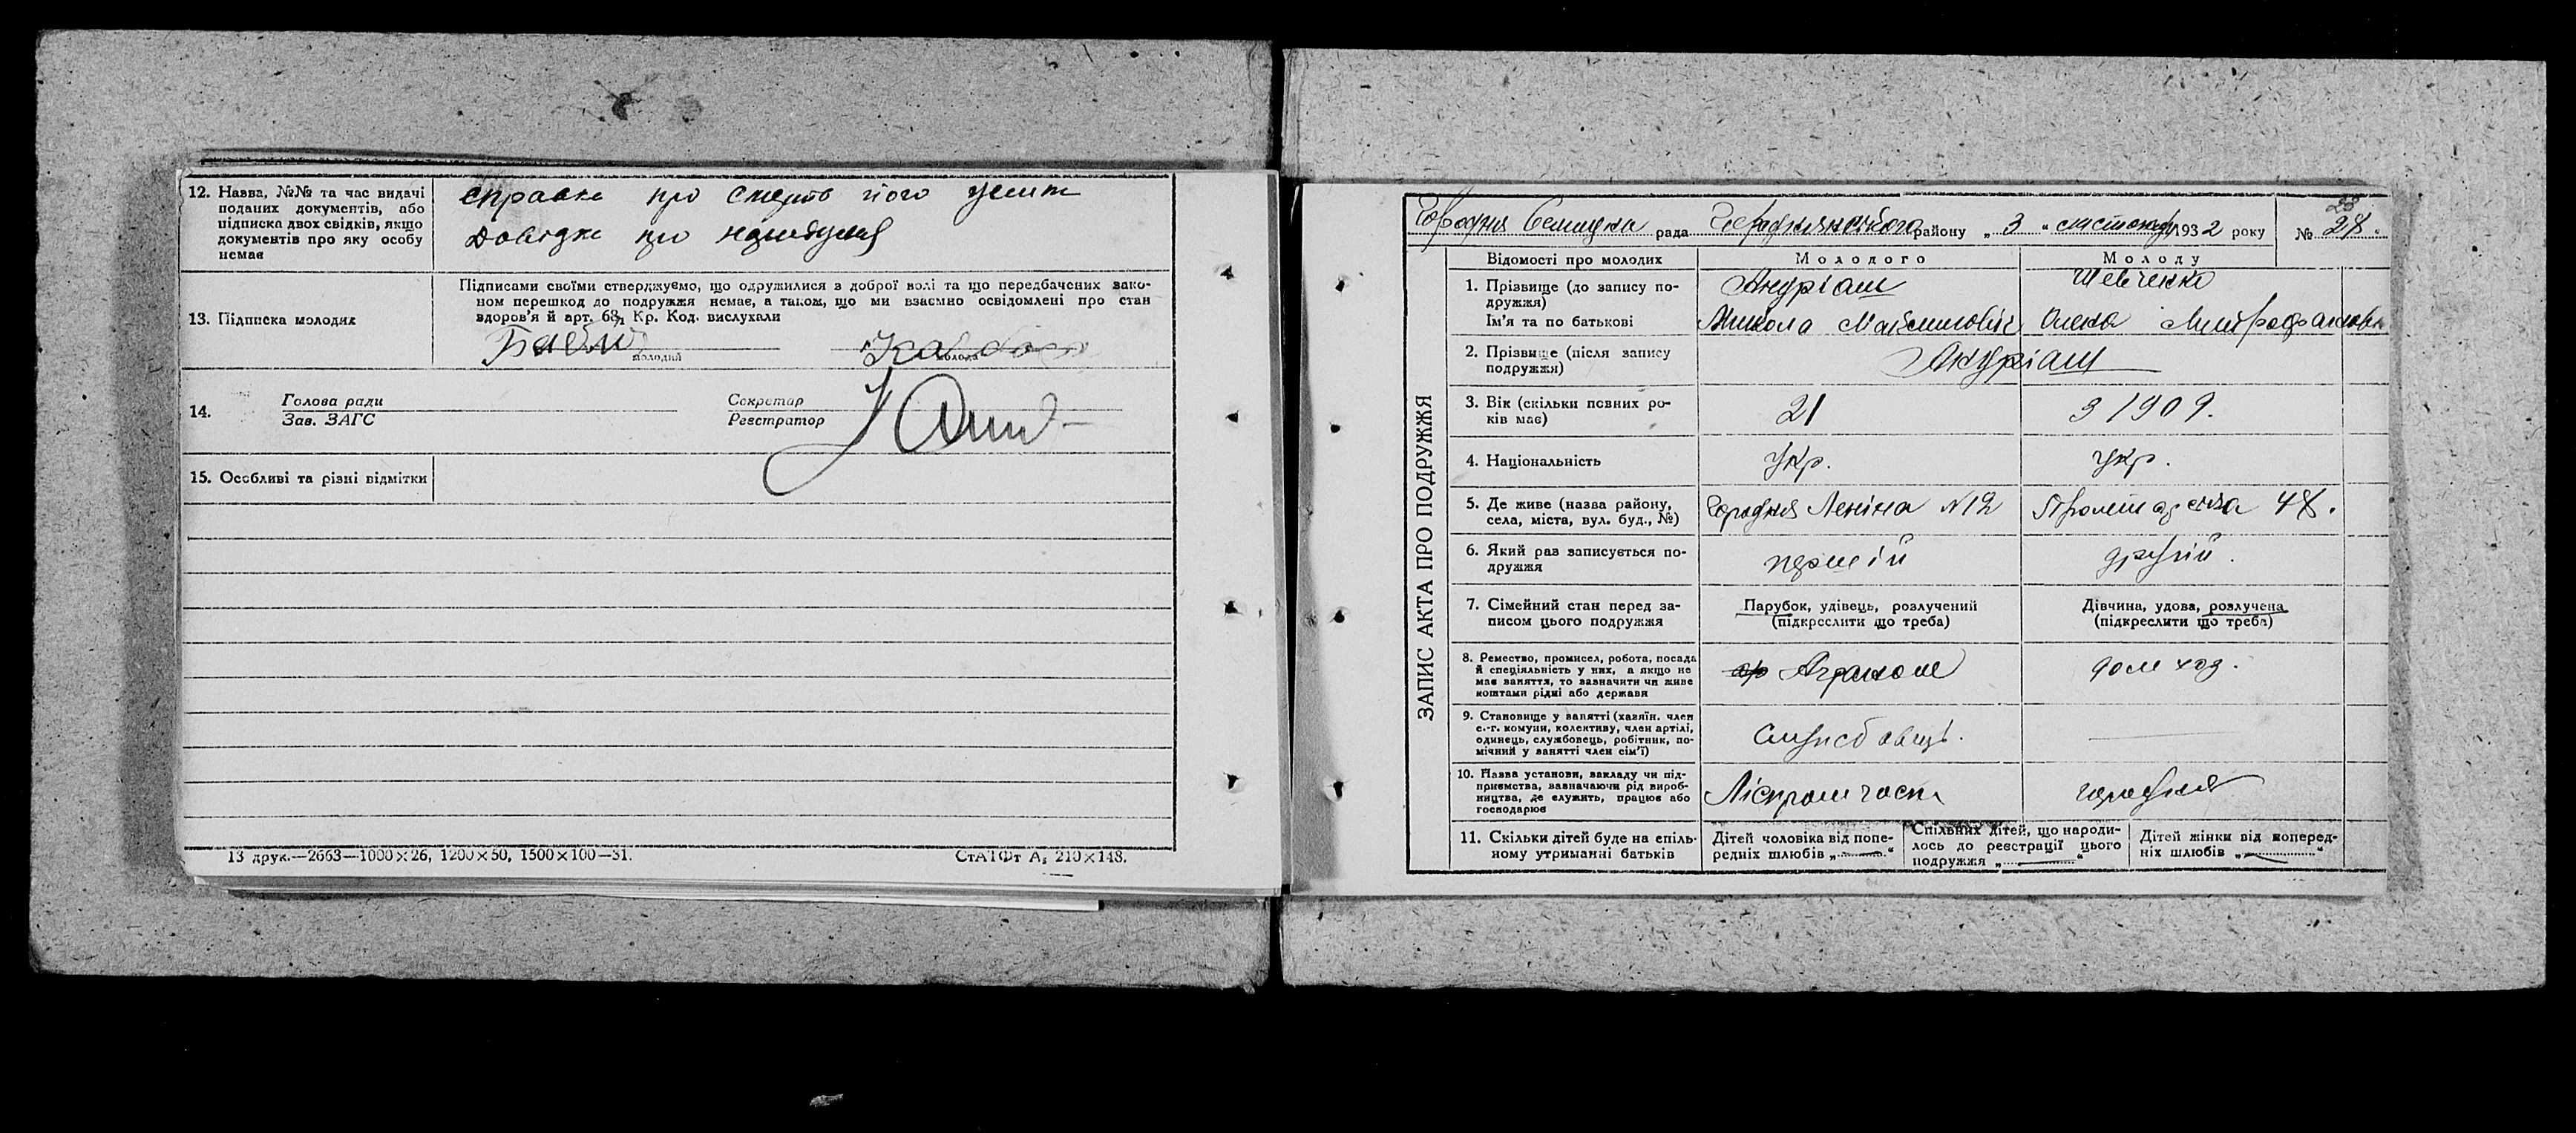 12. Назва, №№ та час видачі
поданих документів, або
підписка двох свідків, якщо
документів про яку особу
немає
справка про смерть його
Довідка про
13. Підписка молодих
Підписами своїми стверджуємо, що одружилися з доброї волі та що передбачених зако-
ном перешкод до подружжя немає, а також, що ми взаємно освідомлені про стан
здоров'я й арт. 68 Кр. Код. вислухали
молодий
молода
14.
Голова ради
Зав. ЗАГС
Секретар
Реєстратор
15. Особливі та різні відмітки
13 друк.—2663—1000×26, 1200×50, 1500×100—31.
СтАТФт А₅ 210×148.
ЗАПИС АКТА ПРО ПОДРУЖЖЯ
Городня Селищна рада району „ 3 “ листопад 1932 року
28
№ 28
Відомості про молодих
Молодого
Молоду
1. Прізвище (до запису по-
дружжя)
Ім'я та по батькові
Андріаш
Микола Максимовіч
Шевченко
Олена Митрофановна
2. Прізвище (після запису
подружжя)
Андріаш
3. Вік (скільки повних ро-
ків має)
21
3 1909.
4. Національність
Укр.
укр.
5. Де живе (назва району,
села, міста, вул. буд., №)
Городня Леніна №12
48.
6. Який раз записується по-
дружжя
першій
другій.
7. Сімейний стан перед за-
писом цього подружжя
Парубок, удівець, розлучений
(підкреслити що треба)
Дівчина, удова, розлучена
(підкреслити що треба)
8. Ремество, промисел, робота, посада
й спеціяльність у них, а якщо не
має заняття, то зазначити чи живе
коштами рідні або держави
Агроном
дом. ход.
9. Становище у занятті (хазяїн. член
с.-г. комуни, колективу, член артілі,
одинець, службовець, робітник, по-
мічний у занятті член сім'ї)
службовець.
10. Назва установи, закладу чи під-
приємства, зазначаючи рід вироб-
ництва, де служить, працює або
господарює
Ліспромгосп
Городня
11. Скільки дітей буде на спіль-
ному утриманні батьків
Дітей чоловіка від попе-
редніх шлюбів „ “
Спільних дітей, що народи-
лось до реєстрації цього
подружжя „ “
Дітей жінки від поперед-
ніх шлюбів „ “